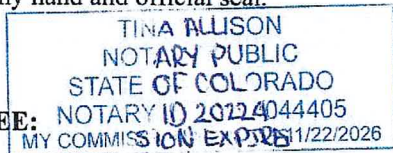 my hand and official seal.
TINA ALLISON
NOTARY PUBLIC
STATE OF COLORADO
EE: NOTARY ID 20224044405
MY COMMISSION EXPIRES 11/22/2026